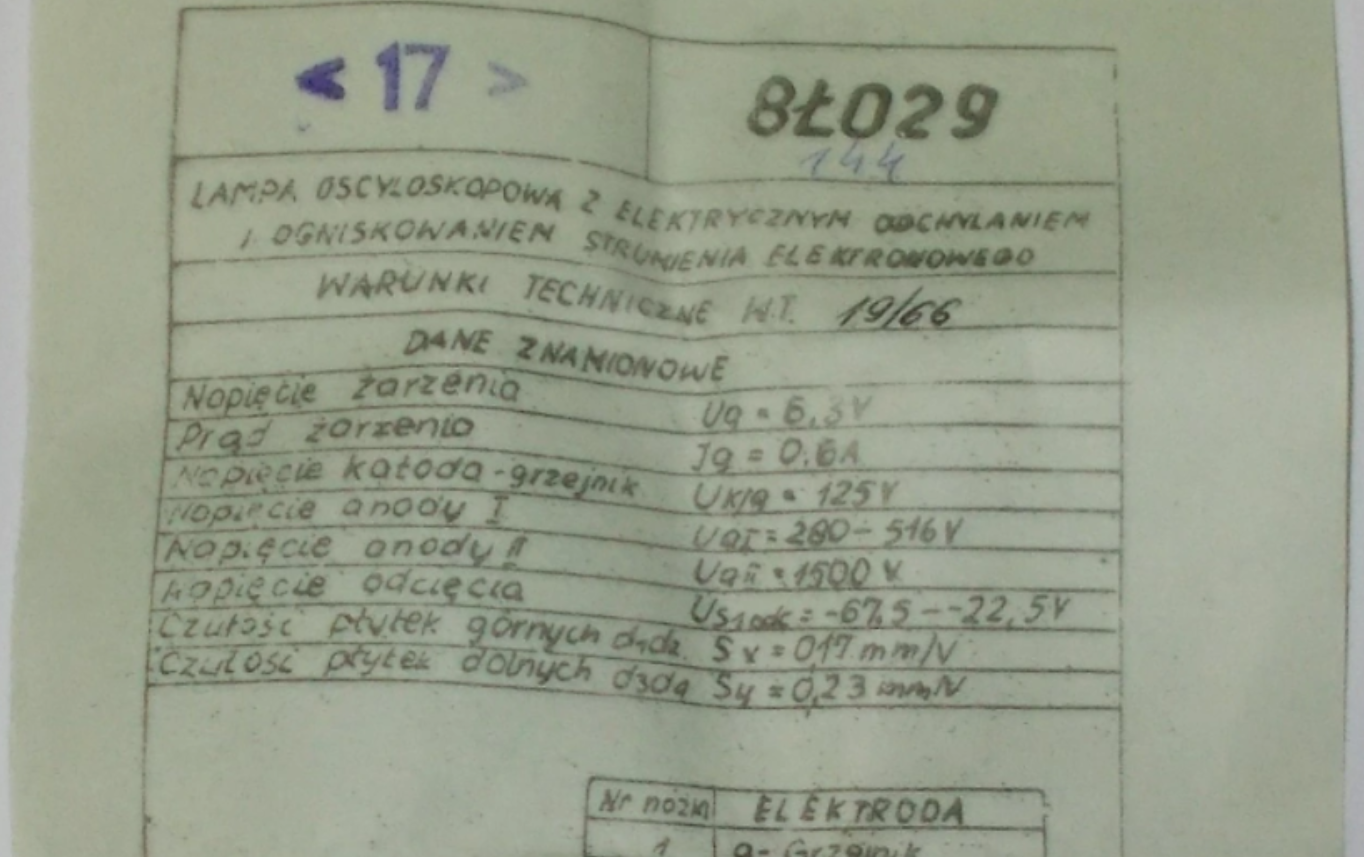 < 17 >
8Ł029
144
LAMPA OSCYLOSKOPOWA Z ELEKTRYCZNYM ODCHYLANIEM
I OGNISKOWANIEM STRUMIENIA ELEKTRONOWEGO
WARUNKI TECHNICZNE W.T. 19/66
DANE ZNAMIONOWE
Napięcie żarzenia Ug = 6,3V
Prąd żarzenia Jg = 0.6A
Napięcie katoda-grzejnik Uk/g = 125V
Napięcie anody I UaI = 280 - 516V
Napięcie anody II UaII = 1500 V
Napięcie odcięcia Us1odc = -67,5 - -22,5V
Czułość płytek górnych d1d2 Sx = 0,17 mm/V
Czułość płytek dolnych d3d4 Sy = 0,23 mm/V
Nr nóżki ELEKTRODA
1 g - Grzejnik